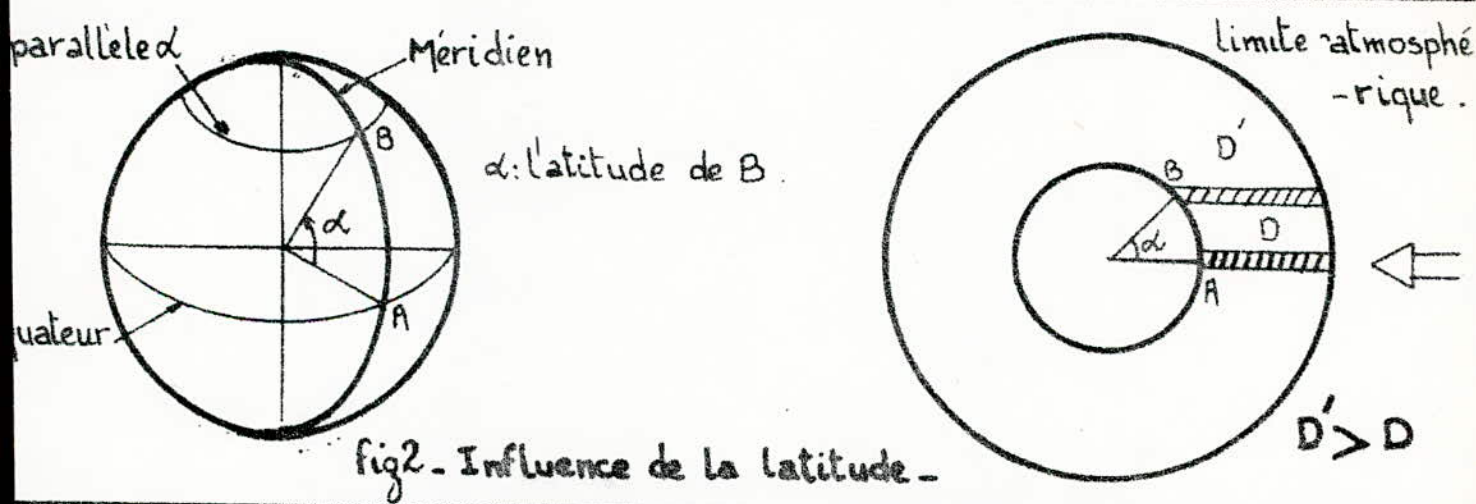 parallèle α
Méridien
B
α: l'atitude de B.
α
A
quateur
limite atmosphé
-rique.
D'
B
D
α
A
D' > D
fig2_ Influence de la latitude_